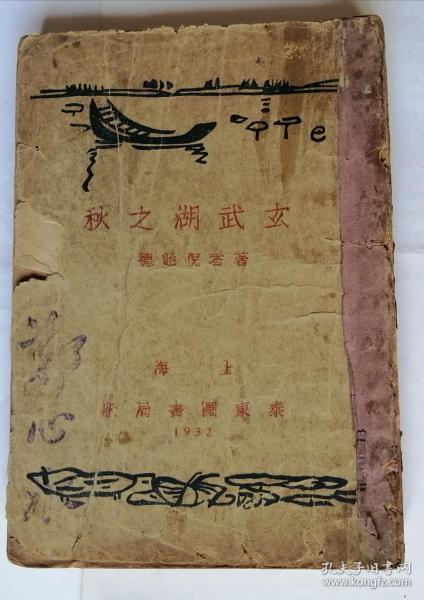 玄武湖之秋
著者倪貽德
上海
泰東圖書局
1932
鄭心
孔夫子旧书网
www.kongfz.com